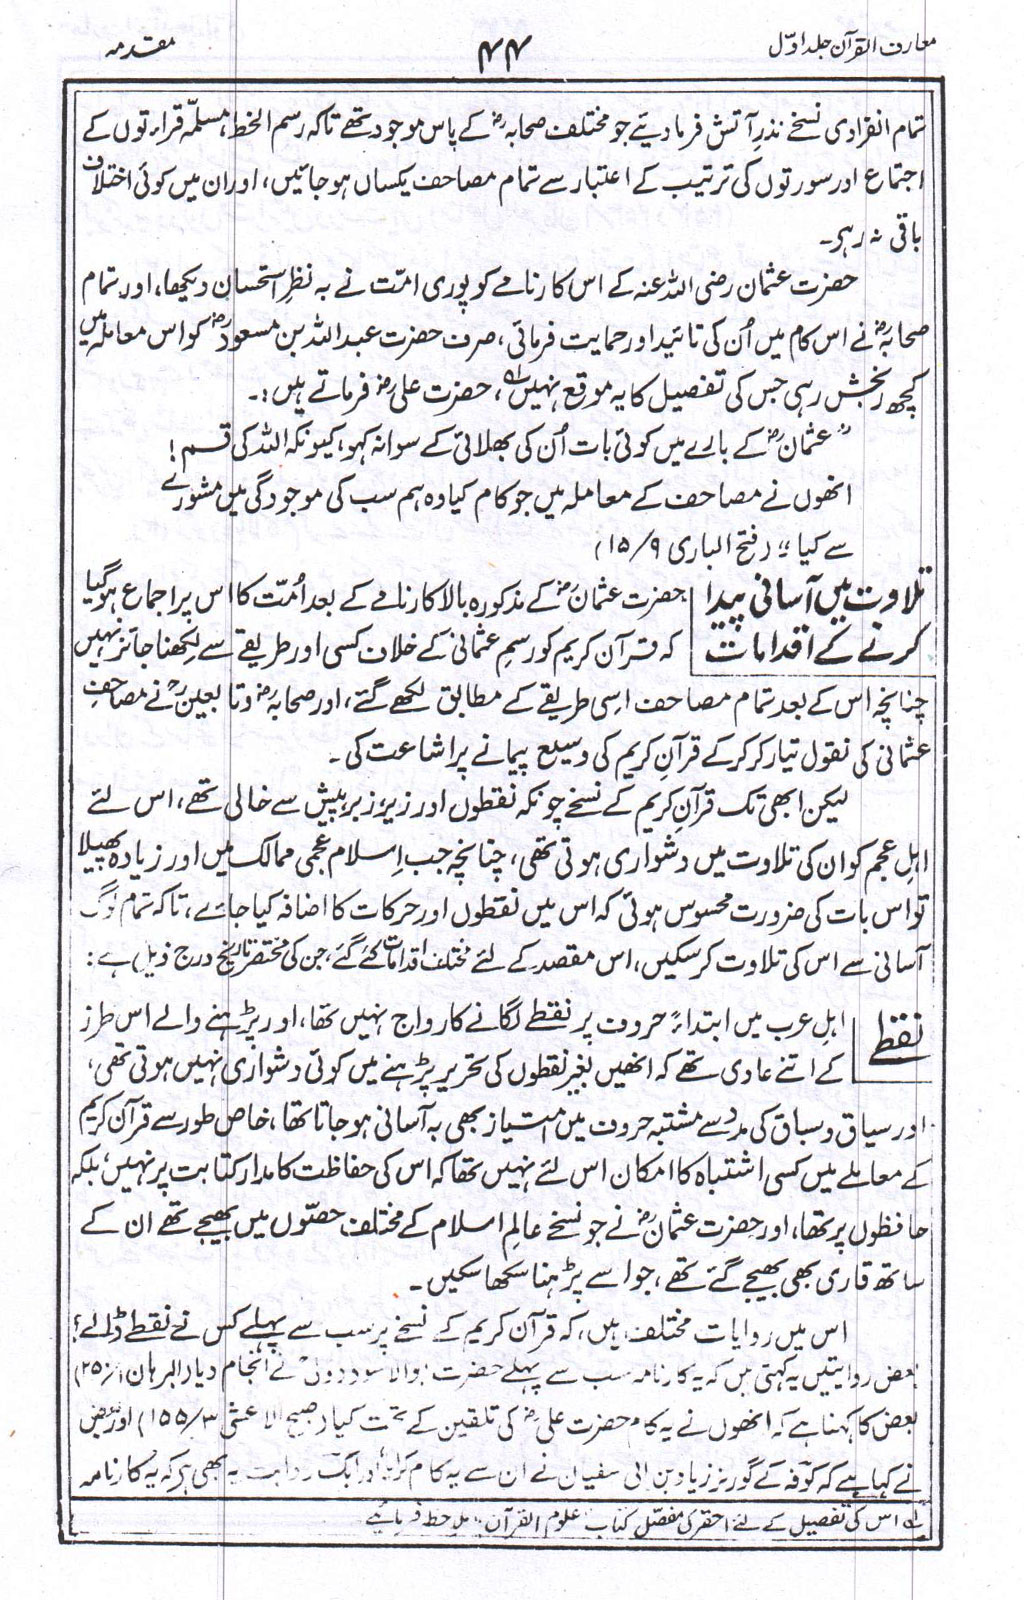 معارف القرآن جلد اوّل
۴۴
مقدمہ
تمام انفرادی نسخے نذرِ آتش فرمادیئے جو مختلف صحابہؓ کے پاس موجود تھے تاکہ رسم الخط، مسلّمہ قراءتوں کے
اجتماع اور سورتوں کی ترتیب کے اعتبار سے تمام مصاحف یکساں ہوجائیں، اور ان میں کوئی اختلاف
باقی نہ رہر۔
حضرت عثمان رضی اللہ عنہ کے اس کارنامے کو پوری امّت نے بہ نظرِ استحسان دیکھا، اور تمام
صحابہؓ نے اس کام میں اُن کی تائید اور حمایت فرمائی، صرف حضرت عبداللہ بن مسعودؓ کو اس معاملہ میں
کچھ رنجش رہی جس کی تفصیل کا یہ موقع نہیں لہ، حضرت علیؓ فرماتے ہیں:۔
"عثمانؓ کے بارے میں کوئی بات اُن کی بھلائی کے سوا نہ کہو، کیونکہ اللہ کی قسم!
انھوں نے مصاحف کے معاملہ میں جو کام کیا وہ ہم سب کی موجودگی میں مشورے
سے کیا" (فتح الباری ۱۵/۹)
تلاوت میں آسانی پیدا
کرنے کے اقدامات
حضرت عثمانؓ کے مذکورہ بالا کارنامے کے بعد اُمّت کا اس پر اجماع ہوگیا
کہ قرآن کریم کو رسمِ عثمانی کے خلاف کسی اور طریقے سے لکھنا جائز نہیں
چنانچہ اس کے بعد تمام مصاحف اسی طریقے کے مطابق لکھے گئے، اور صحابہؓ و تابعینؒ نے مصاحفِ
عثمانی کی نقول تیار کرکرکے قرآنِ کریم کی وسیع پیمانے پر اشاعت کی۔
لیکن ابھی تک قرآنِ کریم کے نسخے چونکہ نقطوں اور زیر، زبر، پیش سے خالی تھے، اس لئے
اہلِ عجم کو ان کی تلاوت میں دشواری ہوتی تھی، چنانچہ جب اسلام عجمی ممالک میں اور زیادہ پھیلا
تو اس بات کی ضرورت محسوس ہوئی کہ اس میں نقطوں اور حرکات کا اضافہ کیا جائے، تاکہ تمام لوگ
آسانی سے اس کی تلاوت کرسکیں، اس مقصد کے لئے مختلف اقدامات کئے گئے، جن کی مختصر تاریخ درج ذیل ہے:
نقطے
اہلِ عرب میں ابتداءً حروف پر نقطے لگانے کا رواج نہیں تھا، اور پڑھنے والے اس طرز
کے اتنے عادی تھے کہ انھیں بغیر نقطوں کی تحریر پڑھنے میں کوئی دشواری نہیں ہوتی تھی،
اور سیاق و سباق کی مدد سے مشتبہ حروف میں امتیاز بھی بہ آسانی ہوجاتا تھا، خاص طور سے قرآن کریم
کے معاملے میں کسی اشتباہ کا امکان اس لئے نہیں تھا کہ اس کی حفاظت کا مدار کتابت پر نہیں، بلکہ
حافظوں پر تھا، اور حضرت عثمانؓ نے جو نسخے عالمِ اسلام کے مختلف حصّوں میں بھیجے تھے ان کے
ساتھ قاری بھی بھیجے گئے تھے، جو اسے پڑھنا سکھا سکیں۔
اس میں روایات مختلف ہیں، کہ قرآن کریم کے نسخے پر سب سے پہلے کس نے نقطے ڈالے؟
بعض روایتیں یہ کہتی ہیں کہ یہ کارنامہ سب سے پہلے حضرت ابوالاسود دؤلیؒ نے انجام دیا (البرہان ۱/۲۵۰)
بعض کا کہنا ہے کہ انھوں نے یہ کام حضرت علیؓ کی تلقین کے تحت کیا (صبح الاعشیٰ ۳/۱۵۵) اور بعض
نے کہا ہے کہ کوفہ کے گورنر زیاد بن ابی سفیان نے ان سے یہ کام کرایا، اور ایک روایت یہ بھی ہر کہ یہ کارنامہ
لہ اس کی تفصیل کے لئے احقر کی مفصّل کتاب "علوم القرآن" ملاحظہ فرمائیے